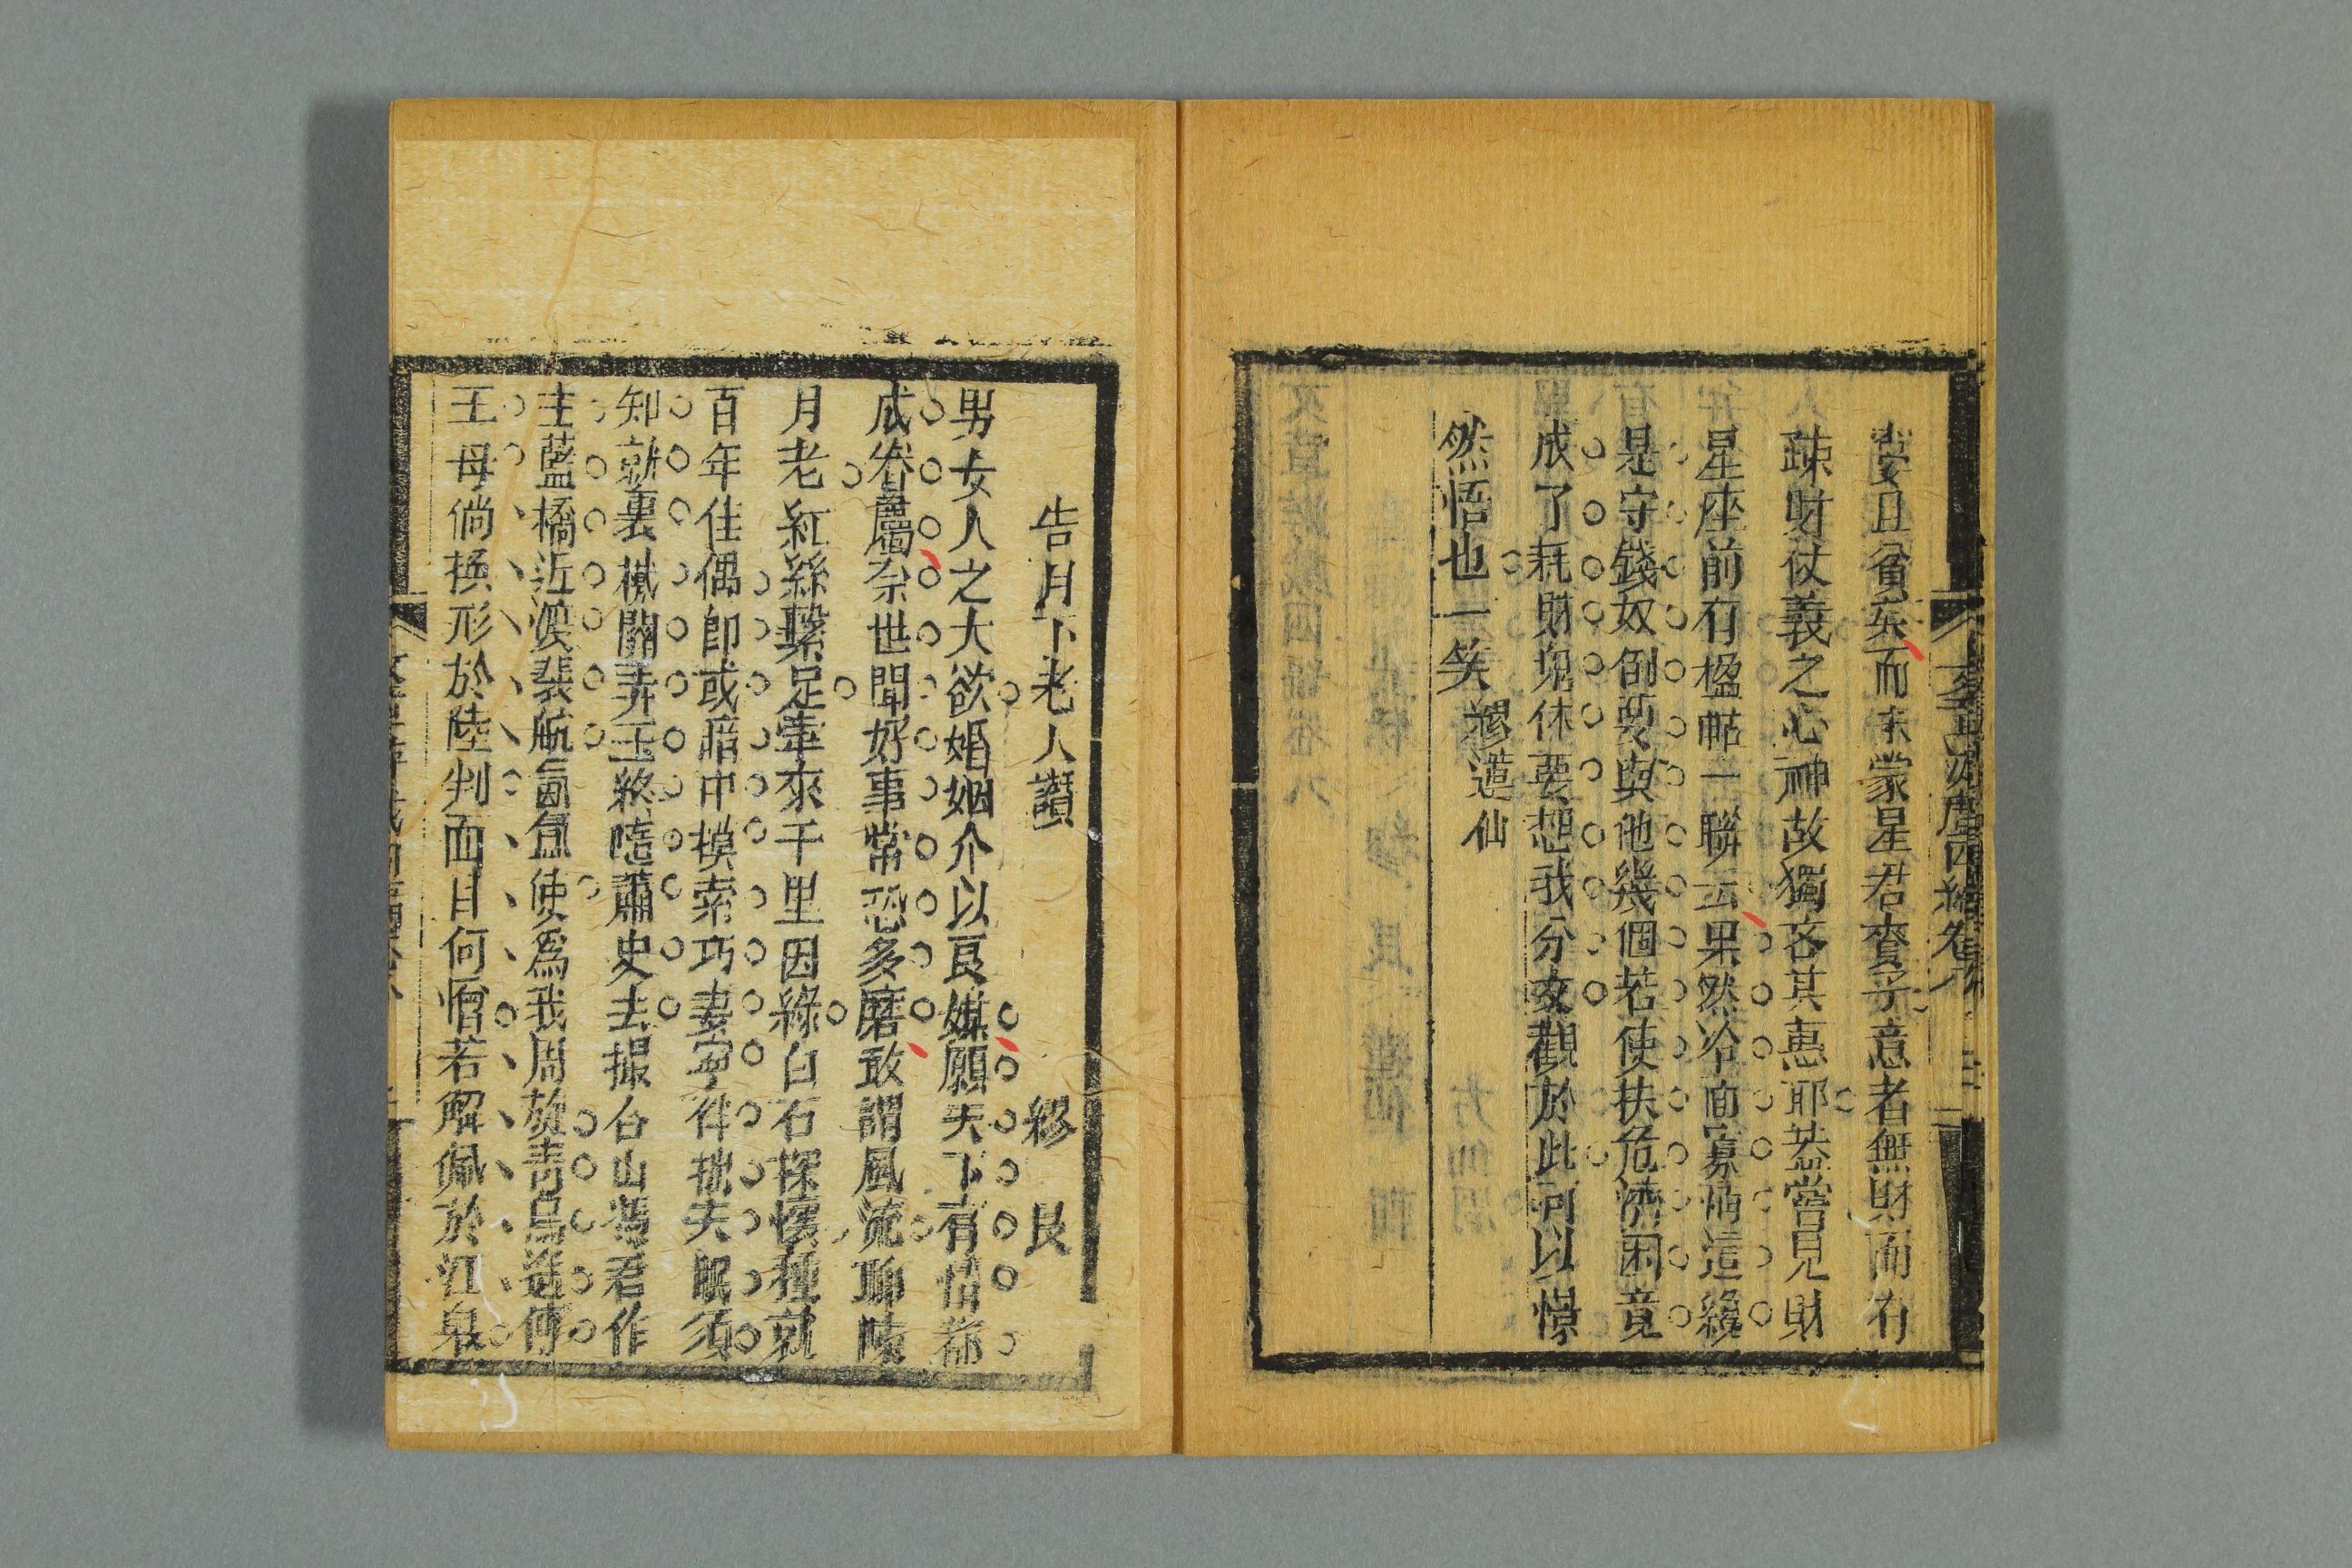 窶且貧矣而未蒙星君賚予意者無財而有
疎財仗義之心神故獨吝其惠耶恭嘗見財
帛星座前有楹帖一聯云果然冷面寡情這纔
是守錢奴倒要與他幾個若使扶危濟困竟
成了耗財鬼休要想我分文觀於此可以憬
然悟也一笑 繆蓮仙
告月下老人讚 繆艮
男女人之大欲婚姻介以良媒願天下有情都
成眷屬奈世間好事常恐多磨敢謂風流聊陳
月老紅絲繫足牽來千里因緣白石探懷種就
百年佳偶即或暗中摸索巧妻寧伴拙夫眠須
知就裏機關弄玉終隨蕭史去撮合山憑君作
主藍橋近渡裴航氤氳使爲我周旋青鳥遙傳
王母倘換形於陸判面目何憎若解佩於江皋